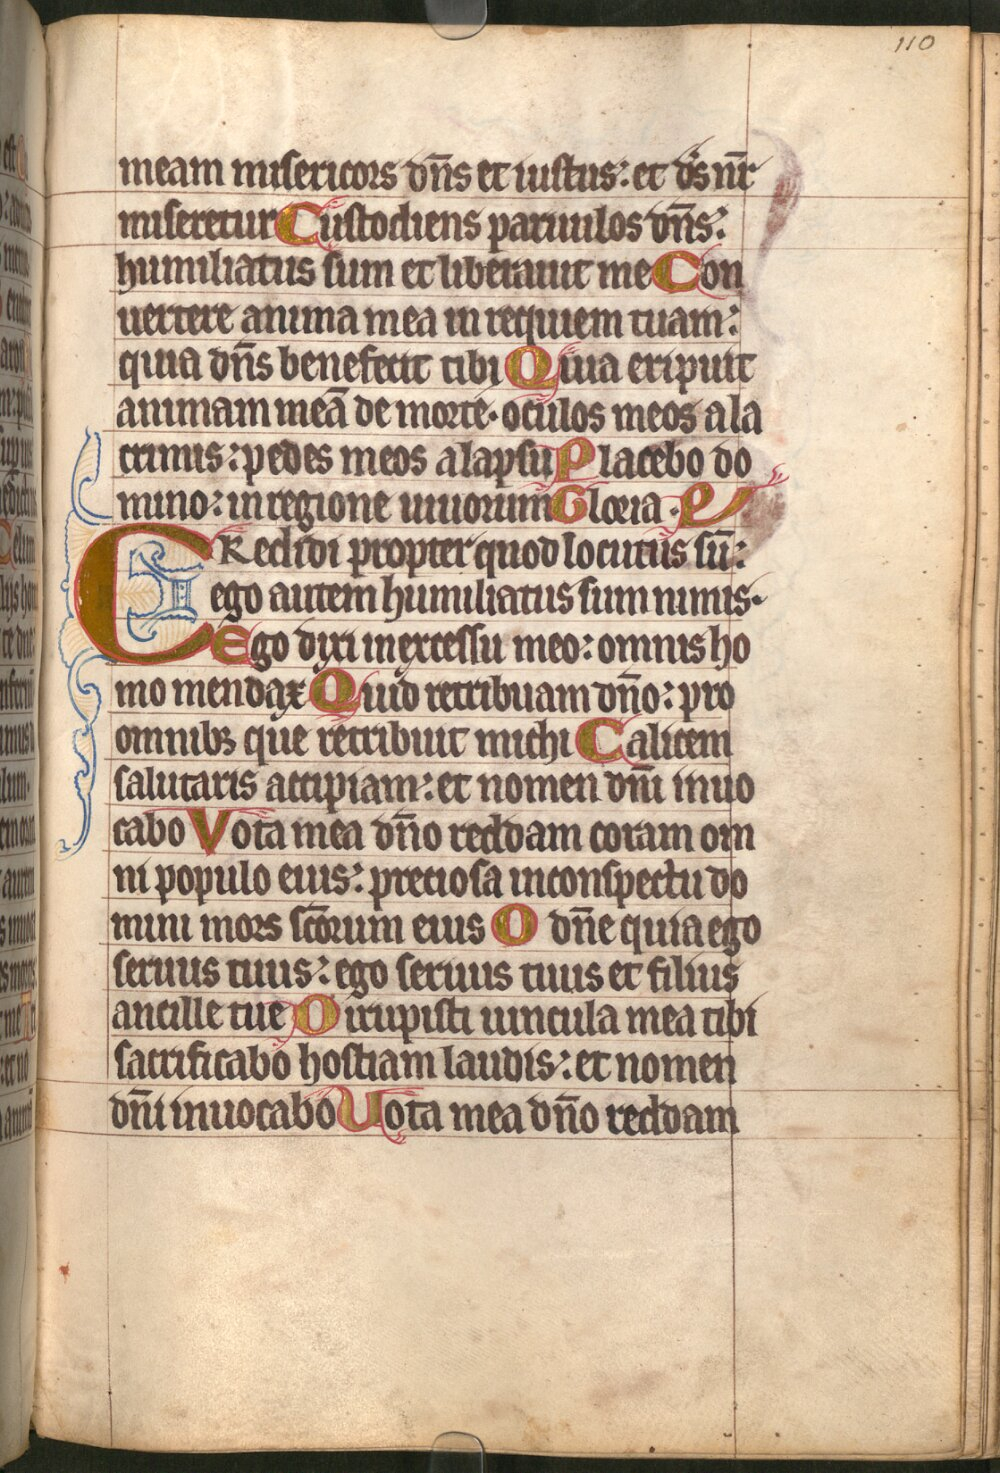 110
meam misericors dn̄s et iustus: et ds̄ nr̄
miseretur Custodiens paruulos dn̄s:
humiliatus sum et liberauit me Con
uertere anima mea in requiem tuam:
quia dn̄s benefecit tibi Quia eripuit
animam meā de morte· oculos meos a la
crimis: pedes meos a lapsu Placebo do
mino: in regione uiuorum Gloria · P
CRedidi propter quod locutus sū:
ego autem humiliatus sum nimis·
Ego dixi in excessu meo: omnis ho
mo mendax Quid retribuam dn̄o: pro
omnibꝫ que retribuit michi Calicem
salutaris accipiam: et nomen dn̄i inuo
cabo Vota mea dn̄o reddam coram om
ni populo eius: preciosa in conspectu do
mini mors sc̄orum eius O dn̄e quia ego
seruus tuus: ego seruus tuus et filius
ancille tue Dirupisti uincula mea tibi
sacrificabo hostiam laudis: et nomen
dn̄i inuocabo Uota mea dn̄o reddam